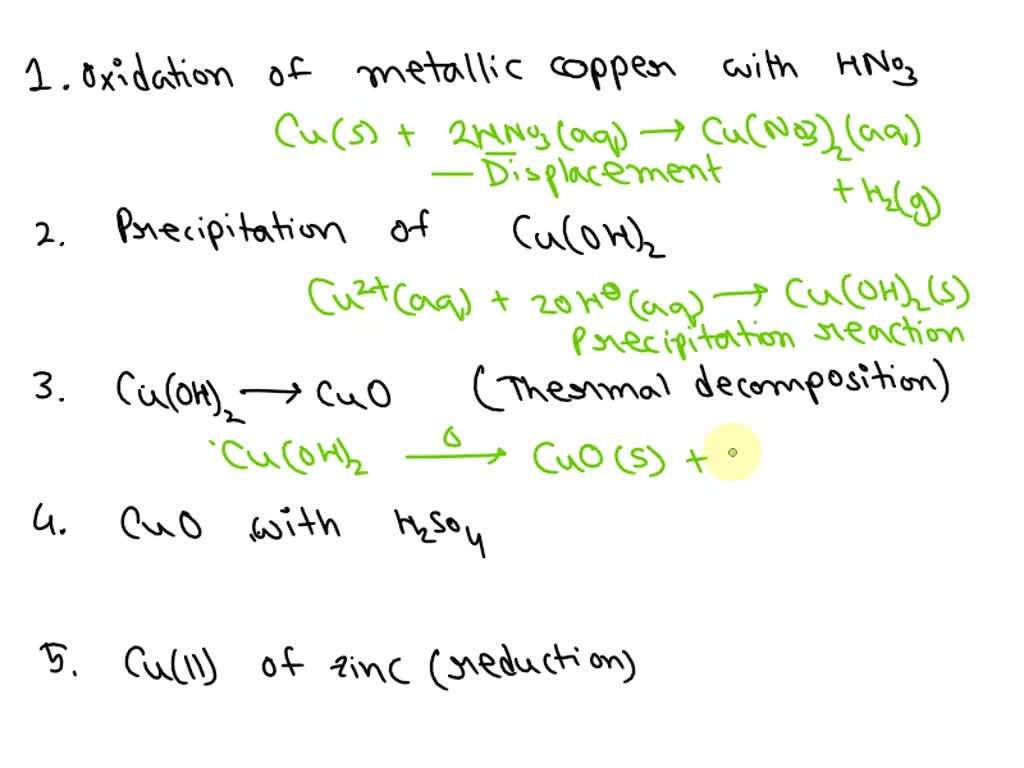 1. Oxidation of metallic copper with HNO3
Cu(s) + 2HNO3(aq) → Cu(NO3)2(aq)
— Displacement
+ H2(g)
2. Precipitation of Cu(OH)2
Cu2+(aq) + 2OH⊖(aq) → Cu(OH)2(s)
Precipitation reaction
3. Cu(OH)2 → CuO (Thermal decomposition)
Cu(OH)2 Δ→ CuO(s) +
4. CuO with H2SO4
5. Cu(II) of zinc (reduction)